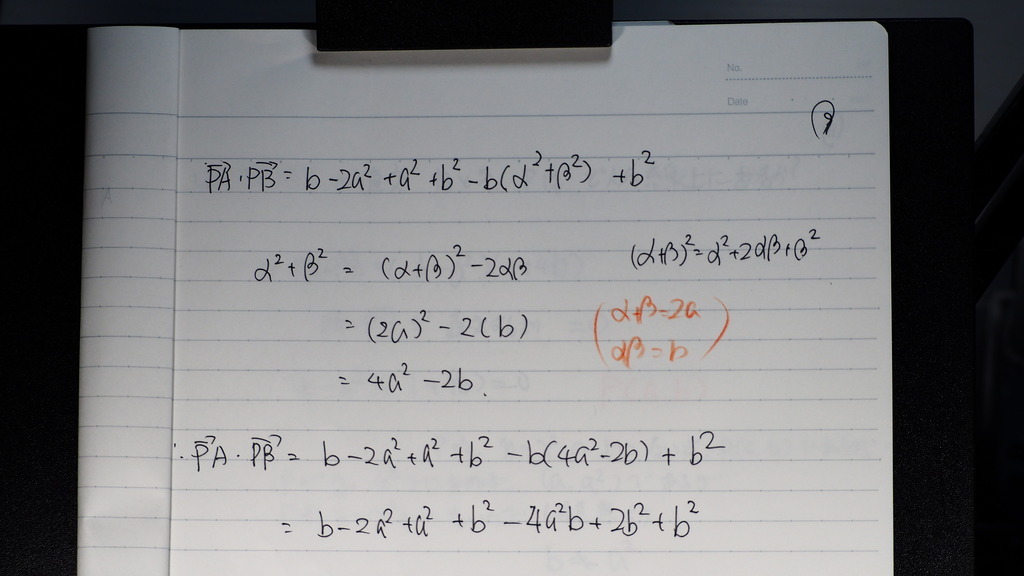 No.
Date
9
PA·PB = b - 2a² + a² + b² - b(α² + β²) + b²
α² + β² = (α+β)² - 2αβ (α+β)² = α² + 2αβ + β²
= (2a)² - 2(b) (α+β = 2a
αβ = b)
= 4a² - 2b.
∴ PA·PB = b - 2a² + a² + b² - b(4a² - 2b) + b²
= b - 2a² + a² + b² - 4a²b + 2b² + b²